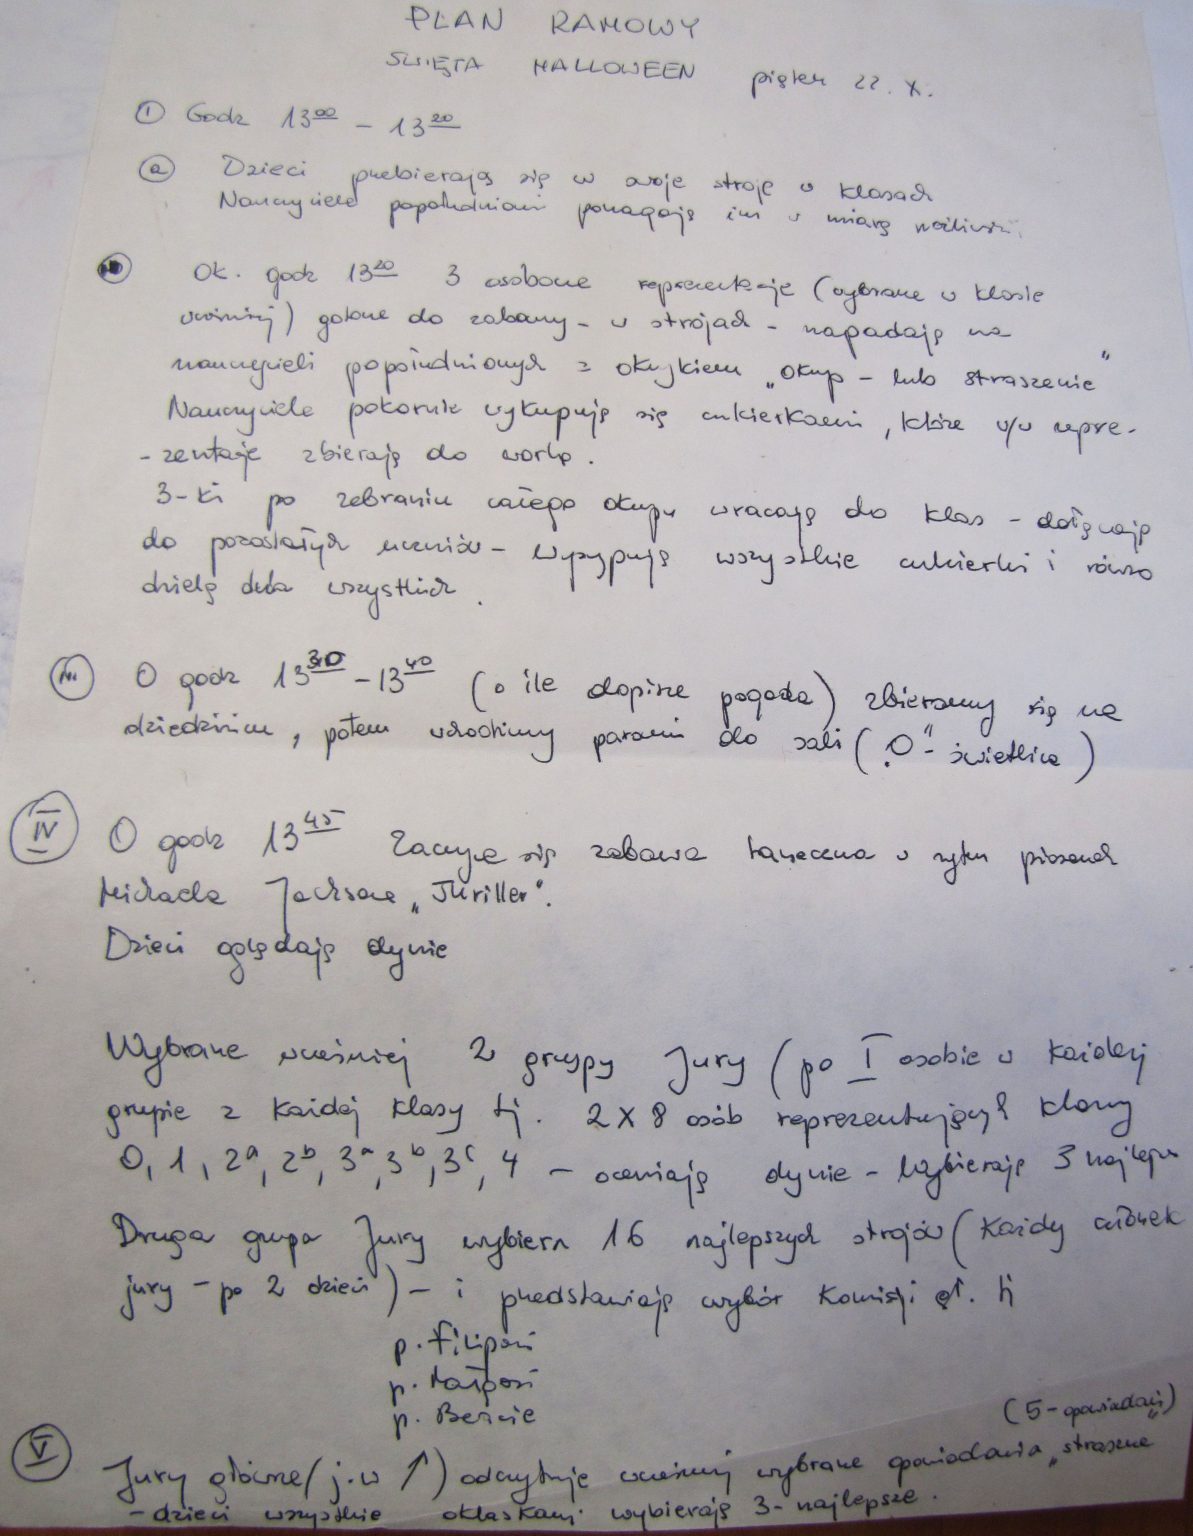 PLAN RAMOWY
ŚWIĘTA HALLOWEEN piątek 22. X.
① Godz 13⁰⁰ – 13²⁰
ⓐ Dzieci przebierają się w swoje stroje w klasach
Nauczyciele popołudniowi pomagają im w miarę możliwości.
Ok. godz 13²⁰ 3 osobowe reprezentacje (wybrane w klasie
wcześniej) gotowe do zabawy – w strojach – napadają na
nauczycieli popołudniowych z okrzykiem „okup – lub straszenie"
Nauczyciele pokornie wykupują się cukierkami, które w/w repre-
-zentacje zbierają do worka.
3-ki po zebraniu całego okupu wracają do klas – dołączają
do pozostałych uczniów – wysypują wszystkie cukierki i równo
dzielą dla wszystkich.
III O godz 13³⁰ – 13⁴⁰ (o ile dopisze pogoda) zbieramy się na
dziedzińcu, potem wchodzimy parami do sali („O" – świetlica)
IV O godz 13⁴⁵ Zaczyna się zabawa taneczna w rytm piosenek
Michaela Jacksona „Thriller".
Dzieci oglądają dynie
Wybrane wcześniej 2 grupy Jury (po I osobie w każdej
grupie z każdej klasy tj. 2 x 8 osób reprezentujących klasy
0, 1, 2ᵃ, 2ᵇ, 3ᵃ, 3ᵇ, 3ᶜ, 4 – oceniają dynie – Wybierają 3 najleps
Druga grupa Jury wybiera 16 najlepszych strojów (Każdy członek
jury – po 2 dzieci) – i przedstawiają wybór Komisji gł. tj
p. Filipowi
p. Małgosi
p. Beacie
(5 – opowiadań)
V Jury główne (j.w ↑) odczytuje wcześniej wybrane opowiadania „straszne"
– dzieci wszystkie oklaskami wybierają 3 – najlepsze.